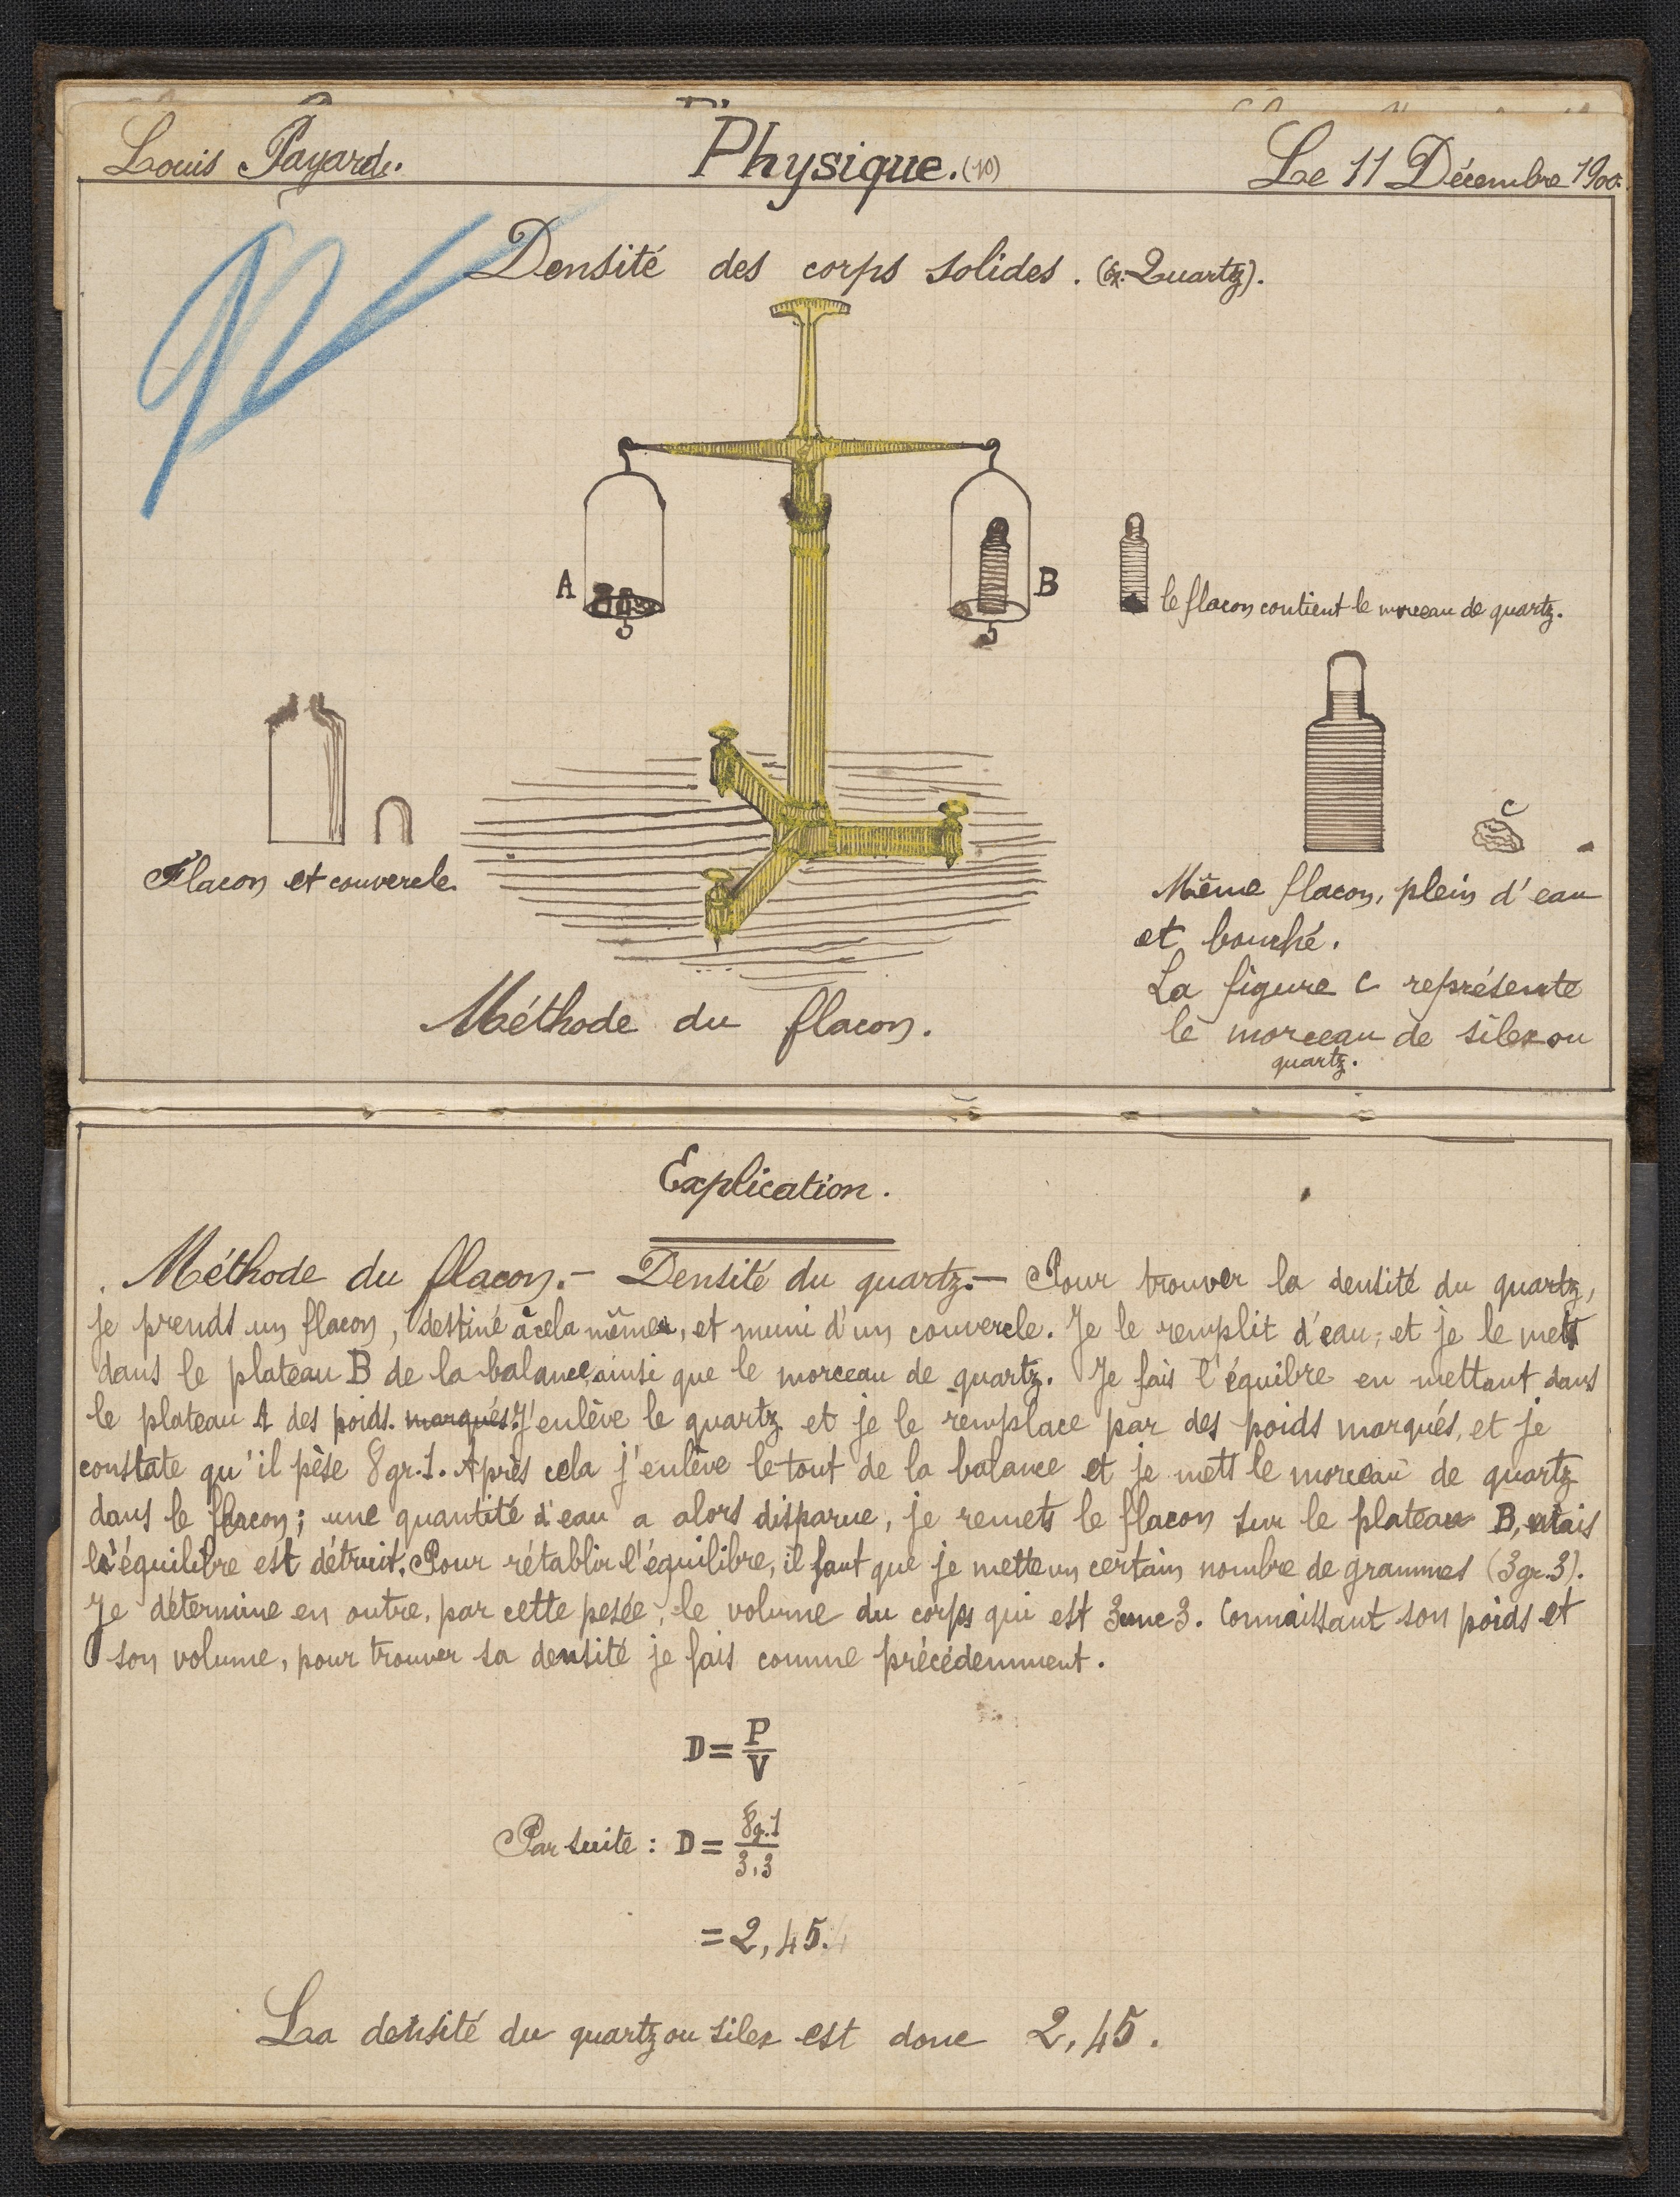 Louis Payard.
Physique. (10)
Le 11 Décembre 1900.
Densité des corps solides. (Ex: Quartz).
A
B
le flacon contient le morceau de quartz.
C
Flacon et couvercle.
Même flacon, plein d'eau
et bouché.
La figure C représente
le morceau de silex ou
quartz.
Méthode du flacon.
Explication.
Méthode du flacon.- Densité du quartz.- Pour trouver la densité du quartz,
je prends un flacon, destiné à cela même, et muni d'un couvercle. Je le remplit d'eau, et je le mets
dans le plateau B de la balance, ainsi que le morceau de quartz. Je fais l'équilibre en mettant dans
le plateau A des poids. marqués. J'enlève le quartz et je le remplace par des poids marqués, et je
constate qu'il pèse 8gr.1. Après cela j'enlève le tout de la balance et je mets le morceau de quartz
dans le flacon; une quantité d'eau a alors disparue, je remets le flacon sur le plateau B, mais
l'équilibre est détruit. Pour rétablir l'équilibre, il faut que je mette un certain nombre de grammes (3gr.3).
Je détermine en outre, par cette pesée, le volume du corps qui est 3cmc3. Connaissant son poids et
son volume, pour trouver sa densité je fais comme précédemment.
D = P/V
Par suite : D = 8g.1/3,3
= 2,45.
La densité du quartz ou silex est donc 2,45.